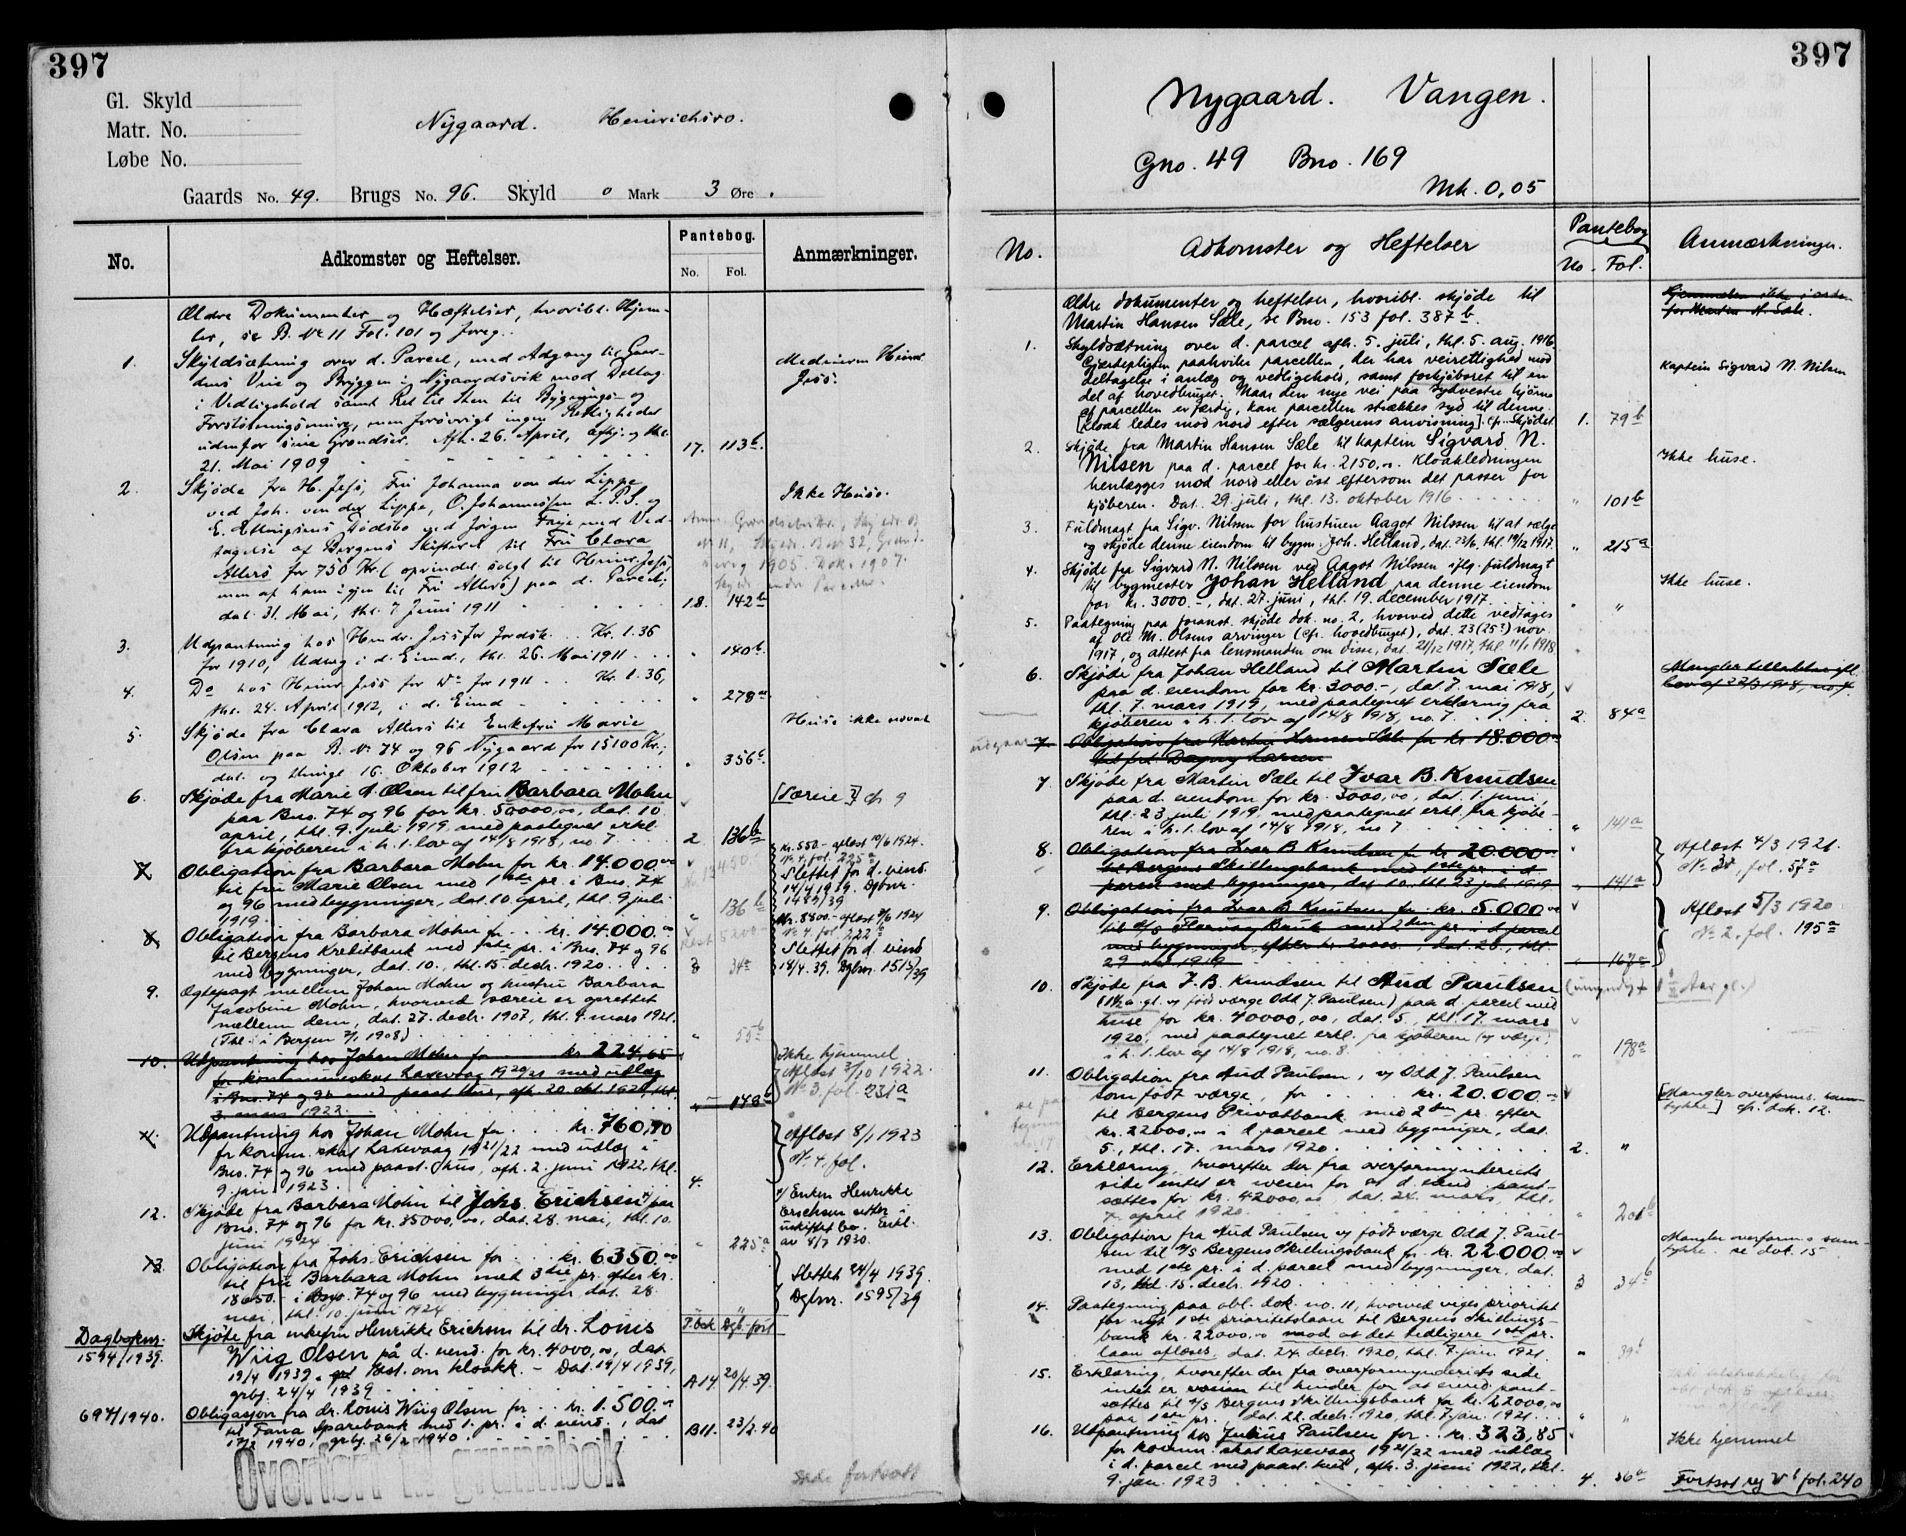 397
Gl. Skyld
Matr. No.
Løbe No.
Nygaard. Heinrichsro.
Gaards No. 49. Brugs No. 96. Skyld 0 Mark 3 Øre.
No. Adkomster og Heftelser. Pantebog. No. Fol. Anmærkninger.
Ældre Dokumenter og Hæftelser, hvoribl. Hjem-
ler, se B. No 11 Fol. 101 og foreg.
1. Skyldsætning over d. Parcel, med Adgang til Gaar-
dens Veie og Bryggen i Nygaardsvik mod Deltag.
i Vedligehold samt Ret til Sten til Bygnings- og
udenfor sine Grændser. Afh. 26. April, afhj. og thl.
21. Mai 1909 17. 113b.
2. Skjøde fra H. Jess, Fru Johanna von der Lippe
ved Joh. von der Lippe, O. Johannessen L. P. S. og
tagelse af Bergens Skifteret til Fru Clara
Allers for 750 Kr. (oprindel. solgt til Heinr. Jess,
men af ham igjen til Fru Allers) paa d. Parcel;
dat. 31. Mai, thl. 7 Juni 1911 18. 142b
Ikke Huse.
3. Udpantning hos Hendr. Jess for Jordsk. Kr. 1.36
for 1910, Udlæg i d. Eiend., thl. 26. Mai 1911 " 140b.
4. Do hos Heinr. Jess for Do for 1911 Kr. 1.36,
thl. 24. April 1912, i d. Eiend " 278a
5. Skjøde fra Clara Allers til Enkefru Marie
Olsen paa B. No 74 og 96 Nygaard for 15100 Kr.;
dat. og thingl. 16. Oktober 1912 " 356b.
Huse ikke nævnt
6. Skjøde fra Marie M. Olsen til fru Barbara Mohn
paa Bno. 74 og 96 for kr. 50000,00, dat. 10
april, thl. 9. juli 1919, med paategnet erkl.
fra kjøberen i h. t. lov af 14/8 1918, no 7 2 136b
[Særeie] cfr. 9
7. Obligation fra Barbara Mohn for kr. 14.000,00
til fru Marie Olsen med 1ste pr. i Bno. 74
og 96 med bygninger, dat. 10 april, thl. 9 juli
1919. " 136b
kr. 550.- afløst 10/6 1924.
No 4. fol. 225a
Slettet for d. eiend.
14/4 1939. Dgbnr.
8. Obligation fra Barbara Mohn for kr. 14.000,00
til Bergens Kreditbank med 1ste pr. i Bno. 74 og 96
med bygninger, dat. 10., thl. 15 decbr. 1920 3 34a
Slettet for d. eiend
14/4. 39. Dgbnr. 1515/39
9. Ægtepagt mellem Johan Mohn og hustru Barbara
Jacobine Mohn, hvorved særeie er oprettet
mellem dem, dat. 27. decbr. 1907, thl. 4. mars 1921.
(Thl. i Bergen 7/1 1908) " 55b
10. Udpantning hos Johan Mohn for kr. 224,65
for kommuneskat Laxevaag 1920/21 med udlæg
3. mars 1922. " 148b
Ikke hjemmel
Afløst 2/10 1922.
No 3. fol. 231a
11. Udpantning hos Johan Mohn for kr. 760,90
for komm. skat Laxevaag 1921/22 med udlæg i
Bno. 74 og 96 med paast. hus, afh. 2. juni 1922, thl.
9 jan. 1923. 4.
Afløst 8/1 1923
No. 4. fol.
12. Skjøde fra Barbara Mohn til Johs. Erichsen paa
Bno. 74 og 96 for kr. 35000,00, dat. 28. mai, thl. 10.
juni 1924 " 225a
Enken Henrikke
Erichsen sitter i
uskiftet bo. Erkl.
av 8/7 1930.
13. Obligation fra Johs. Erichsen for kr. 6350,00
til fru Barbara Mohn med 3die pr. efter kr.
18650.- i Bno. 74 og 96 med bygninger dat. 28.
mai, thl. 10. juni 1924 " "
Slettet 24/4 1939.
Dgbnr. 1595/39
Dagboknr.
1594/1939.
Skjøte fra enkefru Henrikke Erichsen til dr. Louis
Wiig Olsen på d. eiend. for kr. 4000,00, dat.
19/4 1939. Best. om kloakk. - Dat. 19/4 1939,
grbf. 24/4 1939 A14. 20/4.39.
697/1940.
Obligasjon fra dr. Louis Wiig Olsen for kr. 1.500.00
til Fana Sparebank med 1. pr. i d. eiend., dat
17/2 1940, grbf. 26/2 1940 B11. 23/2.40
Overført til grunnbok
Siste fortsatt
397
Nygaard. Vangen.
Gno. 49 Bno. 169
Mk. 0,05
No. Adkomster og Heftelser Pantebog No. Fol. Anmærkninger.
Ældre dokumenter og heftelser, hvoribl. skjøde til
Martin Hansen Sæle, se Bno. 153 fol. 387b.
Hjemmelen ikke i orden
for Martin H. Sæle.
1. Skyldsætning over d. parcel afh. 5. juli, thl. 5. aug. 1916.
Gjerdepligten paahviler parcellen, der har veirettighed mod
deltagelse i anlæg og vedligehold, samt forkjøbsret til en
del af hovedbruget. Naar den nye vei paa sydvestre hjørne
af parcellen er færdig, kan parcellen strækkes syd til denne.
[Kloak ledes mod nord efter sælgerens anvisning]. Cfr. skjødet 1. 79b
Kaptein Sigvard N. Nilsen
2. Skjøde fra Martin Hansen Sæle til kaptein Sigvard N.
Nilsen paa d. parcel for kr. 2150,00. Kloakledningen
henlægges mod nord eller øst eftersom det passer for
kjøberen. Dat. 29. juli, thl. 13. oktober 1916 " 101b
Ikke huse.
3. Fuldmagt fra Sigv. Nilsen for hustruen Aagot Nilssen til at sælge
og skjøde denne eiendom til bygm. Joh. Helland, dat. 23/6, thl. 19/12 1917. " 215a
4. Skjøde fra Sigvard N. Nilssen ved Aagot Nilssen iflg. fuldmagt
til bygmester Johan Helland paa denne eiendom
for kr. 3000.-, dat. 27. juni, thl. 19. december 1917. " "
Ikke huse.
5. Paategning paa foranst. skjøde dok. no. 2, hvorved dette vedtages
af Ole M. Olsens arvinger (cfr. hovedbruget), dat. 23 (25?) nov
1917, og attest fra lensmanden om disse, dat. 21/12 1917, thl. 11/1 1918 "
6. Skjøde fra Johan Helland til Martin Sæle
paa d. eiendom for kr. 3000.-, dat. 7. mai 1918,
thl. 7. mars 1919, med paategnet erklæring fra
kjøberen i h. t. lov af 14/8 1918, no. 7 2. 84a
udgaar 7. Obligation fra Martin Hansen Sæle for kr 18.000,00
til frk Dagny Larsen
7 Skjøde fra Martin Sæle til Ivar B. Knudsen
paa d. eiendom for kr. 3000,00, dat. 1. juni,
thl. 23 juli 1919, med paategnet erkl. fra kjøbe-
ren i h. t. lov af 14/8 1918, no 7 " 141a
8. Obligation fra Ivar B. Knudsen for kr. 20.000,00
til Bergens Skillingsbank med 1ste pr. i d.
parcel med bygninger, dat. 10. thl. 23 juli 1919 " 141a
Afløst 4/3 1921.
No 3, fol. 57a
9. Obligation fra Ivar B. Knutsen for kr. 5.000,00
til A/S Florvaag Bruk med 2den pr. i d. parcel
med bygninger, efter kr. 20000.-, dat. 26., thl.
29 1919 " 167a
Afløst 5/3 1920
No 2. fol. 195a
10. Skjøde fra J. B. Knudsen til Aud Paulsen
(1½ a. gl. v/ født værge Odd J. Paulsen) paa d. parcel med
huse for kr. 40000,00, dat. 5., thl. 17. mars
1920, med paategnet erkl. fra kjøberen (v/ værge)
i h. t. lov af 14/8 1918, no. 8. " 198a
(umyndig 1½ Aar gl.)
11. Obligation fra Aud Paulsen, v/ Odd J. Paulsen
som født værge, for kr. 20.000,00
til Bergens Privatbank med 2den pr. efter
kr. 22000,00 i d. parcel med bygninger, dat.
5., thl. 17. mars 1920. 2. "
[Mangler overforms. sam-
tykke] cfr. dok. 12.
12. Erklæring, hvorefter der fra overformynderiets
side intet er iveien for at d. eiend. pant-
sættes for kr. 42000,00, dat. 24. mars, thl.
7. april 1920. " 201b
13. Obligation fra Aud Paulsen v/ født værge Odd J. Paul-
sen til A/S Bergens Skillingsbank for kr. 22000,00
med 1ste pr. i d. parcel med bygninger, dat.
13, thl. 15. decbr. 1920. 3 34b
Mangler overform.s sam-
tykke. se dok. 15
14. Paategning paa obl. dok. no. 11, hvorved viges prioritet
for nyt 1ste prioritetslaan til Bergens Skillings-
bank kr. 22000,00 mod at det tidligere 1ste pr.
laan aflæses, dat. 24. decbr. 1920, thl. 7. jan. 1921. " 39b
15. Erklæring, hvorefter der fra overformynderiets side
intet er til hinder for at eiend. pant-
sættes til A/S Bergens Skillingsbank for kr. 22000,00
paa 1ste pr. dat. 22. decbr. 1920, thl. 7 jan. 1921 " "
16. Udpantning hos Julius Paulsen for kr. 323,85
for komm. skat Laxevaag 1921/22 med udlæg
i d. parcel med paast. hus, afh. 3. juni 1922, thl.
9. jan. 1923 4. 36a
Ikke hjemmel
Fortsat reg V fol. 240